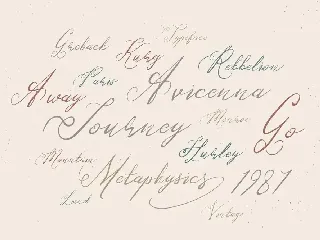 Typeface
Greback Kurg
Rebbelion
Paris
Away Avicenna
Journey Monroe Go
Hurley
Mountain
Metaphysics 1987
Loud
Vintage